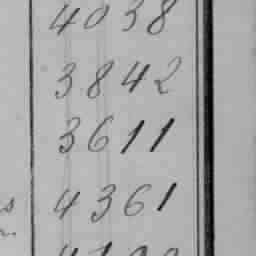 4038
3842
3611
s 4361